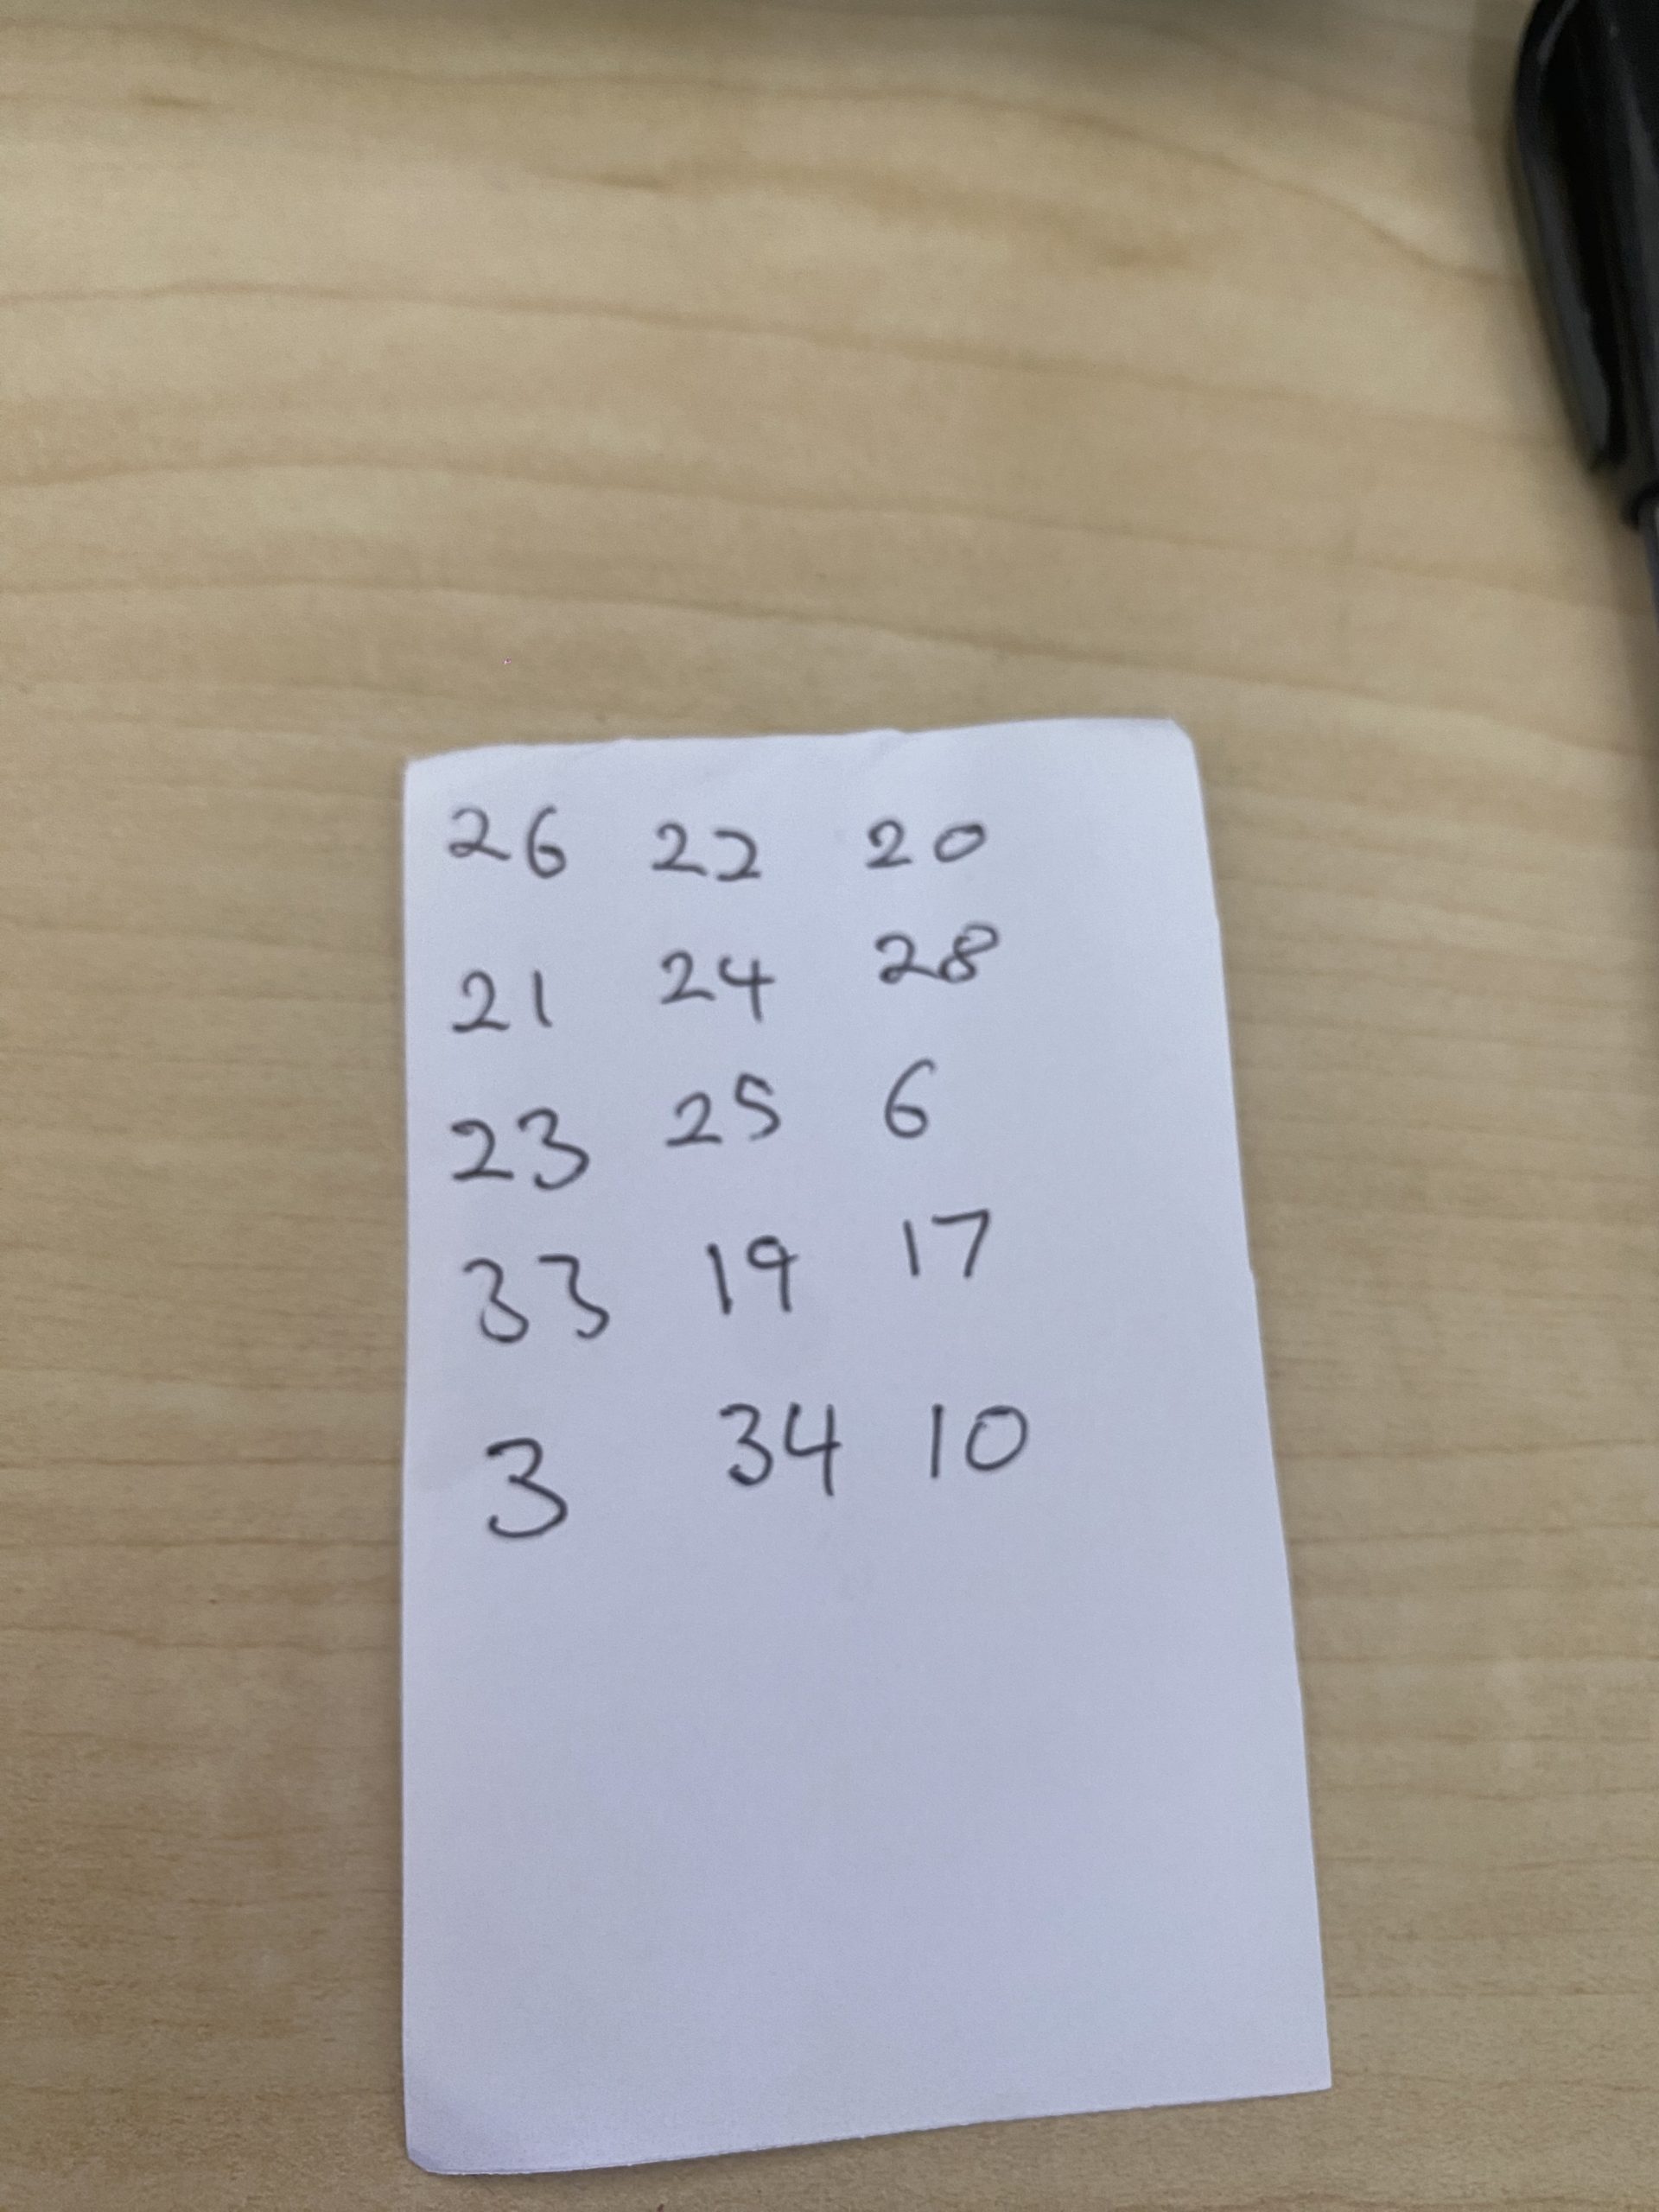 26 22 20
21 24 28
23 25 6
33 19 17
3 34 10